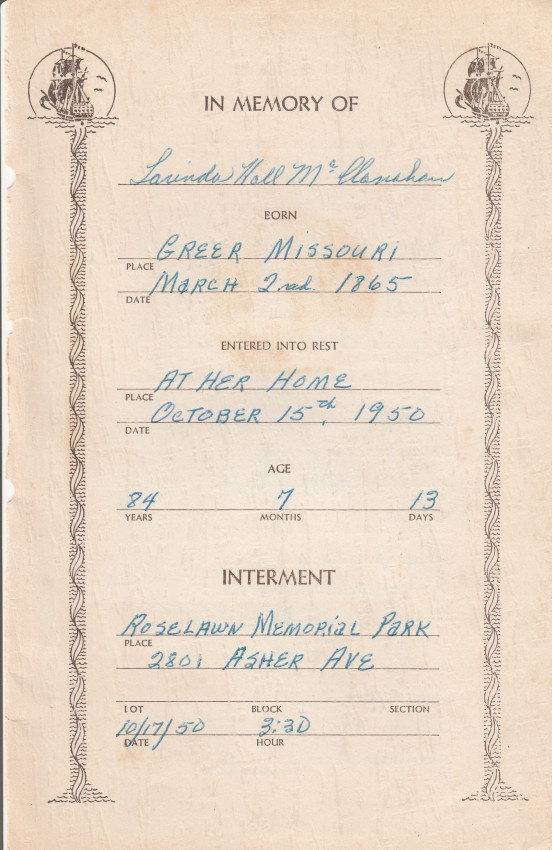 IN MEMORY OF
Lavinda Hall McClanahan
BORN
GREER MISSOURI
PLACE
MARCH 2nd. 1865
DATE
ENTERED INTO REST
AT HER HOME
PLACE
OCTOBER 15th, 1950
DATE
AGE
84 7 13
YEARS MONTHS DAYS
INTERMENT
ROSELAWN MEMORIAL PARK
PLACE
2801 ASHER AVE
LOT BLOCK SECTION
10/17/50 3:30
DATE HOUR